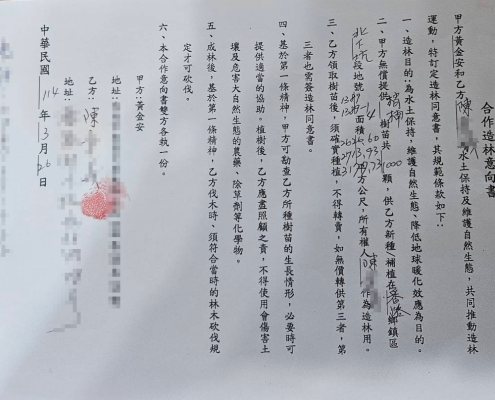 合作造林意向書
甲方黃金安和乙方陳 水土保持及維護自然生態，共同推動造林
運動，特訂定造林同意書，其規範條款如下：
一、造林目的：為水土保持，維護自然生態、降低地球暖化效應為目的。
二、甲方無償提供 樹苗共1000顆，供乙方新種/補植在 鄉鎮區
段地號 面積 平方公尺，所有權人陳 作為造林用。
三、乙方領取樹苗後，須確實種植，不得轉賣，如無償轉供第三者，第
三者也需簽造林同意書。
四、基於第一條精神，甲方可勘查乙方所種樹苗的生長情形，必要時可
提供適當的協助。植樹後，乙方應盡照顧之責，不得使用會傷害土
壤及危害大自然生態的農藥、除草劑等化學物。
五、成林後，基於第一條精神，乙方伐木時、須符合當時的林木砍伐規
定才可砍伐。
六、本合作意向書雙方各執一份。
甲方：黃金安
地址：
乙方：陳
地址：
中華民國114年3月26日